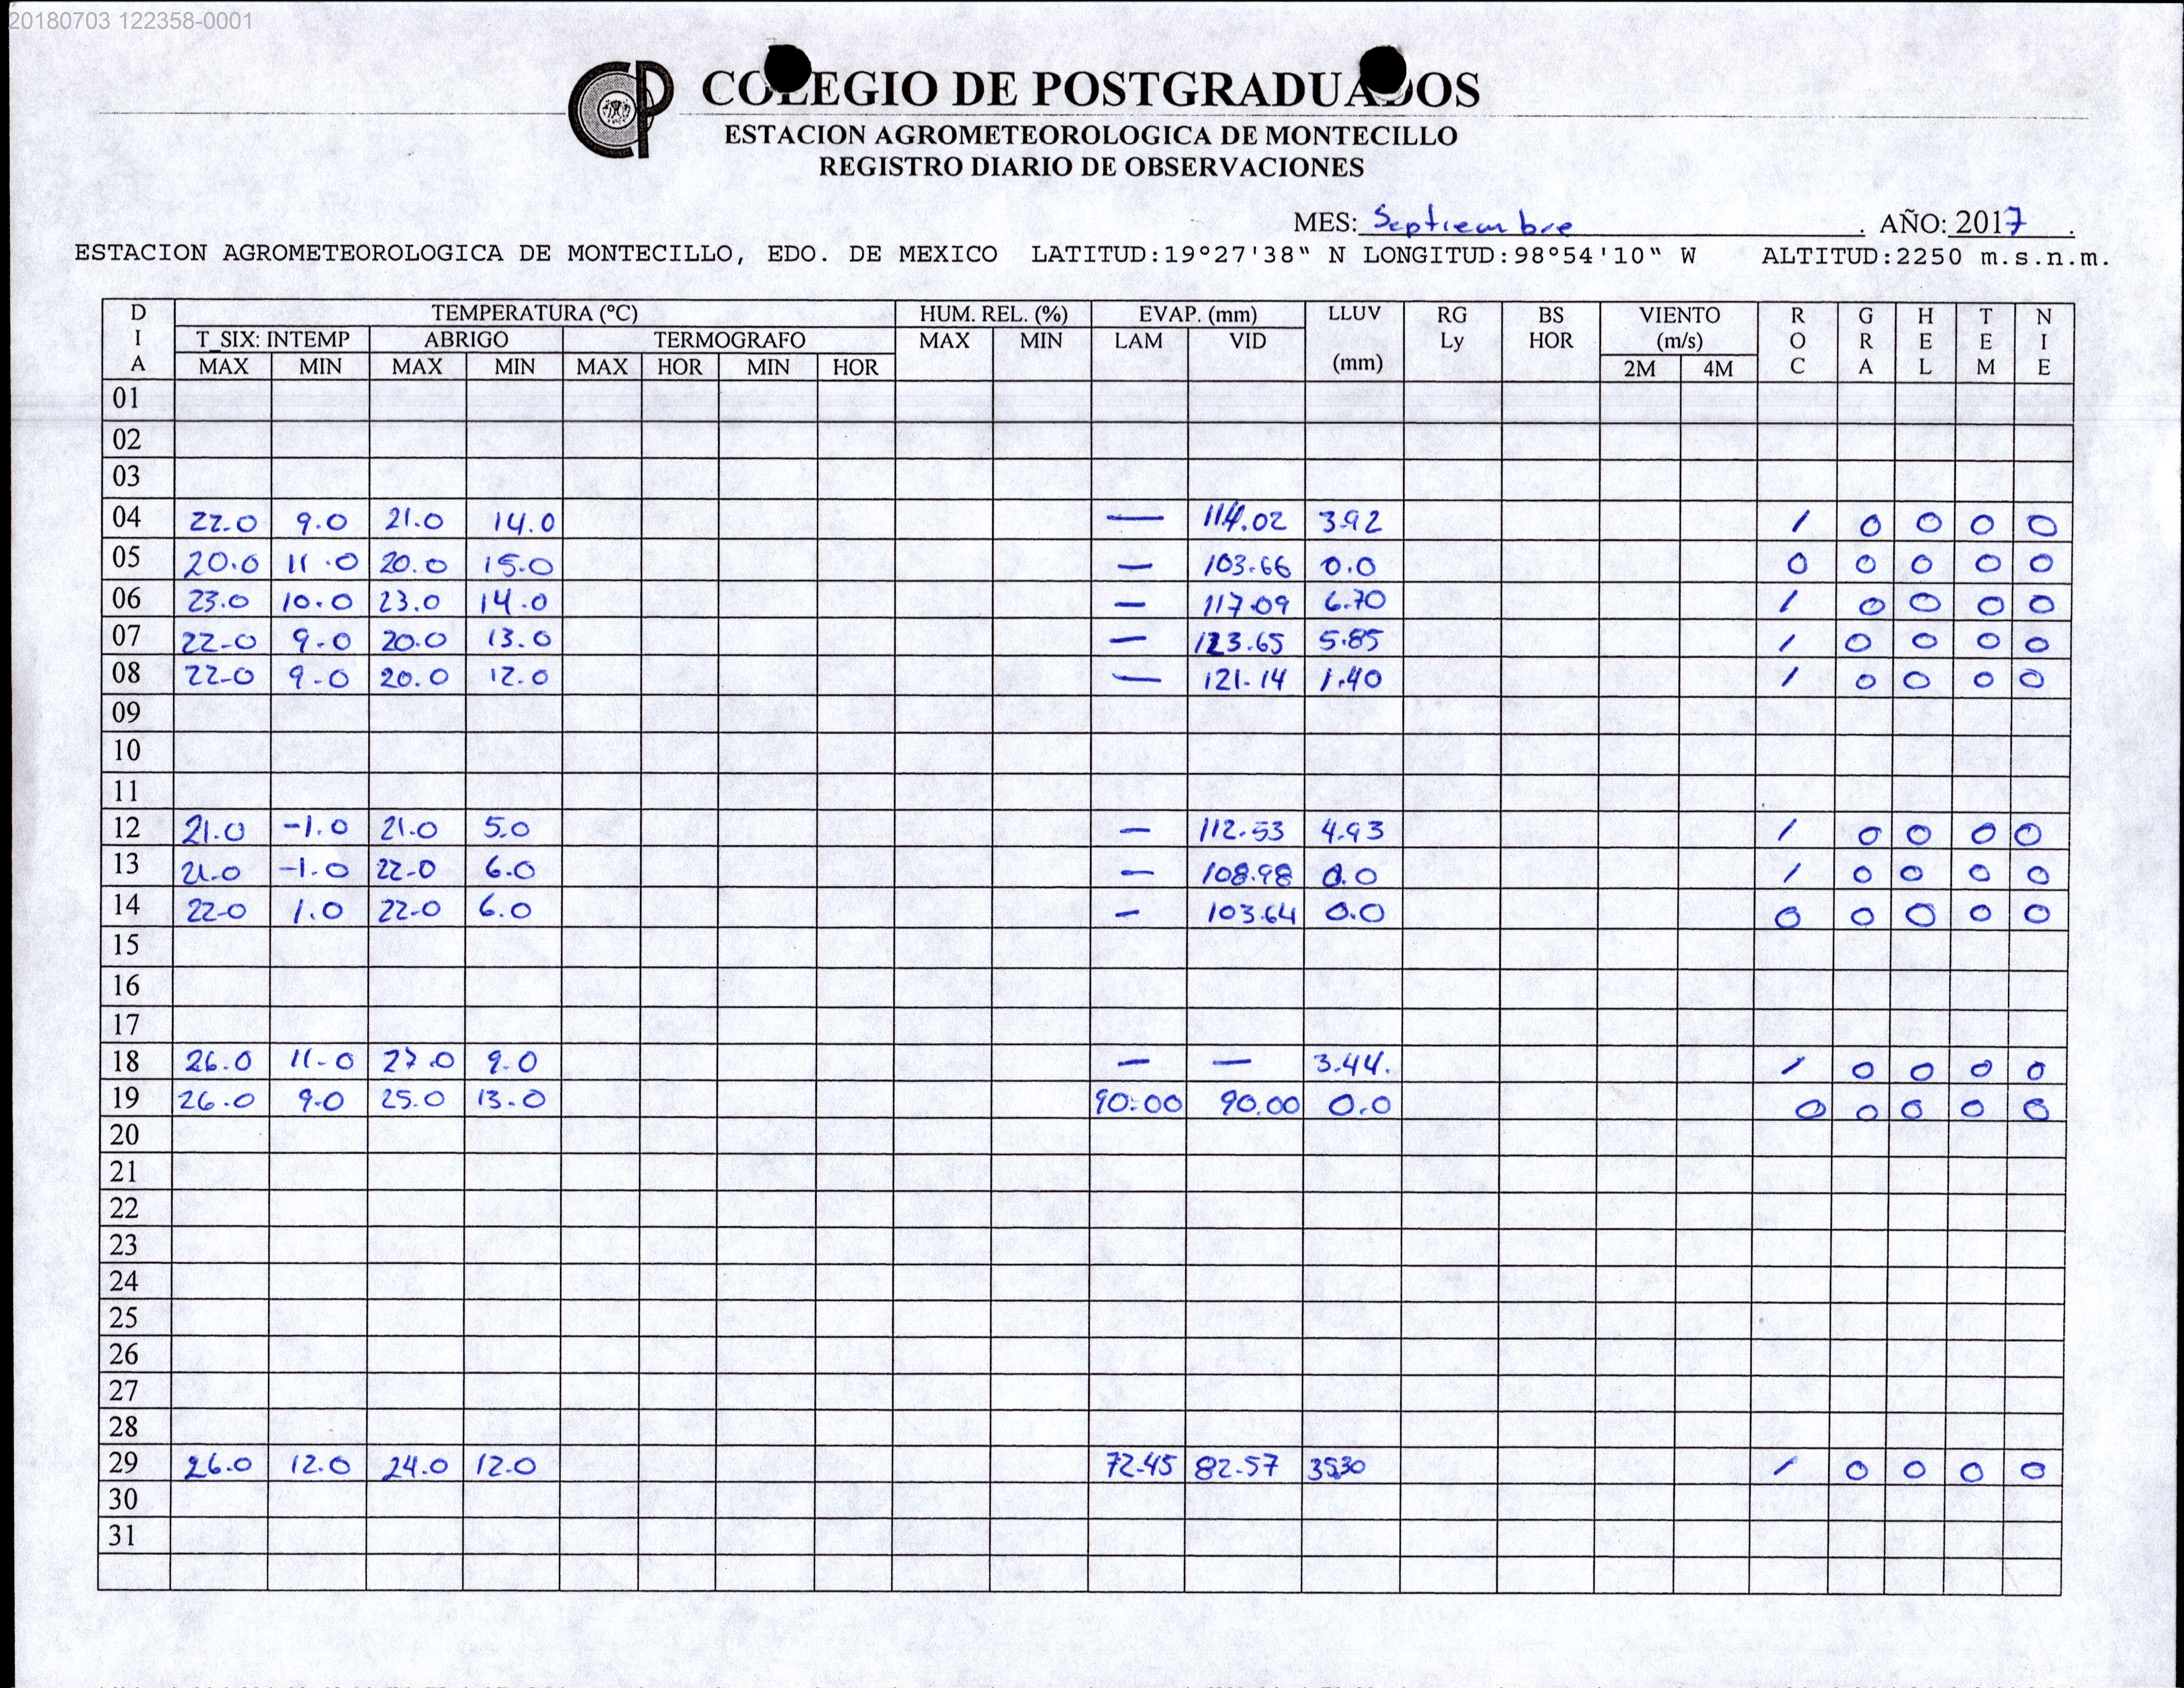 20180703 122358-0001
CP COLEGIO DE POSTGRADUADOS
ESTACION AGROMETEOROLOGICA DE MONTECILLO
REGISTRO DIARIO DE OBSERVACIONES
MES: Septiembre. AÑO: 2017.
ESTACION AGROMETEOROLOGICA DE MONTECILLO, EDO. DE MEXICO LATITUD:19°27'38" N LONGITUD:98°54'10" W ALTITUD:2250 m.s.n.m.
DIA TEMPERATURA (ºC) HUM. REL. (%) EVAP. (mm) LLUV (mm) RG Ly BS HOR VIENTO (m/s) ROC GRA HEL TEM NIE
T_SIX: INTEMP ABRIGO TERMOGRAFO MAX MIN LAM VID
MAX MIN MAX MIN MAX HOR MIN HOR 2M 4M
01
02
03
04 22.0 9.0 21.0 14.0 — 114.02 3.92 / 0 0 0 0
05 20.0 11.0 20.0 15.0 — 103.66 0.0 0 0 0 0 0
06 23.0 10.0 23.0 14.0 — 117.09 6.70 / 0 0 0 0
07 22.0 9.0 20.0 13.0 — 123.65 5.85 / 0 0 0 0
08 22.0 9.0 20.0 12.0 — 121.14 1.40 / 0 0 0 0
09
10
11
12 21.0 -1.0 21.0 5.0 — 112.53 4.93 / 0 0 0 0
13 21.0 -1.0 22.0 6.0 — 108.98 0.0 / 0 0 0 0
14 22.0 1.0 22.0 6.0 — 103.64 0.0 0 0 0 0 0
15
16
17
18 26.0 11.0 27.0 9.0 — — 3.44. / 0 0 0 0
19 26.0 9.0 25.0 13.0 90.00 90.00 0.0 0 0 0 0 0
20
21
22
23
24
25
26
27
28
29 26.0 12.0 24.0 12.0 72.45 82.57 35.30 / 0 0 0 0
30
31